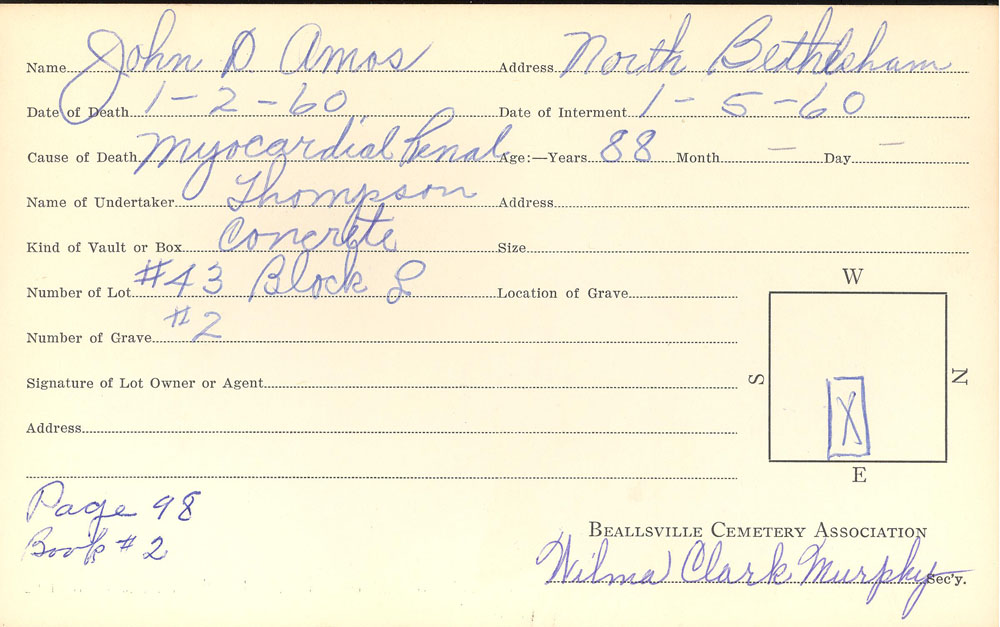 Name John D Amos Address North Bethlsham
Date of Death 1-2-60 Date of Interment 1-5-60
Cause of Death Myocardial Renal Age:—Years 88 Month — Day —
Name of Undertaker Thompson Address
Kind of Vault or Box Concrete Size
Number of Lot #43 Block L Location of Grave
Number of Grave #2
W
Signature of Lot Owner or Agent
S N
X
Address
E
Page 98
Book #2
BEALLSVILLE CEMETERY ASSOCIATION
Wilma Clark Murphy Sec'y.